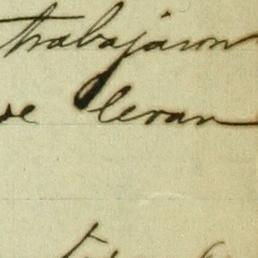 trabajaron
se levan